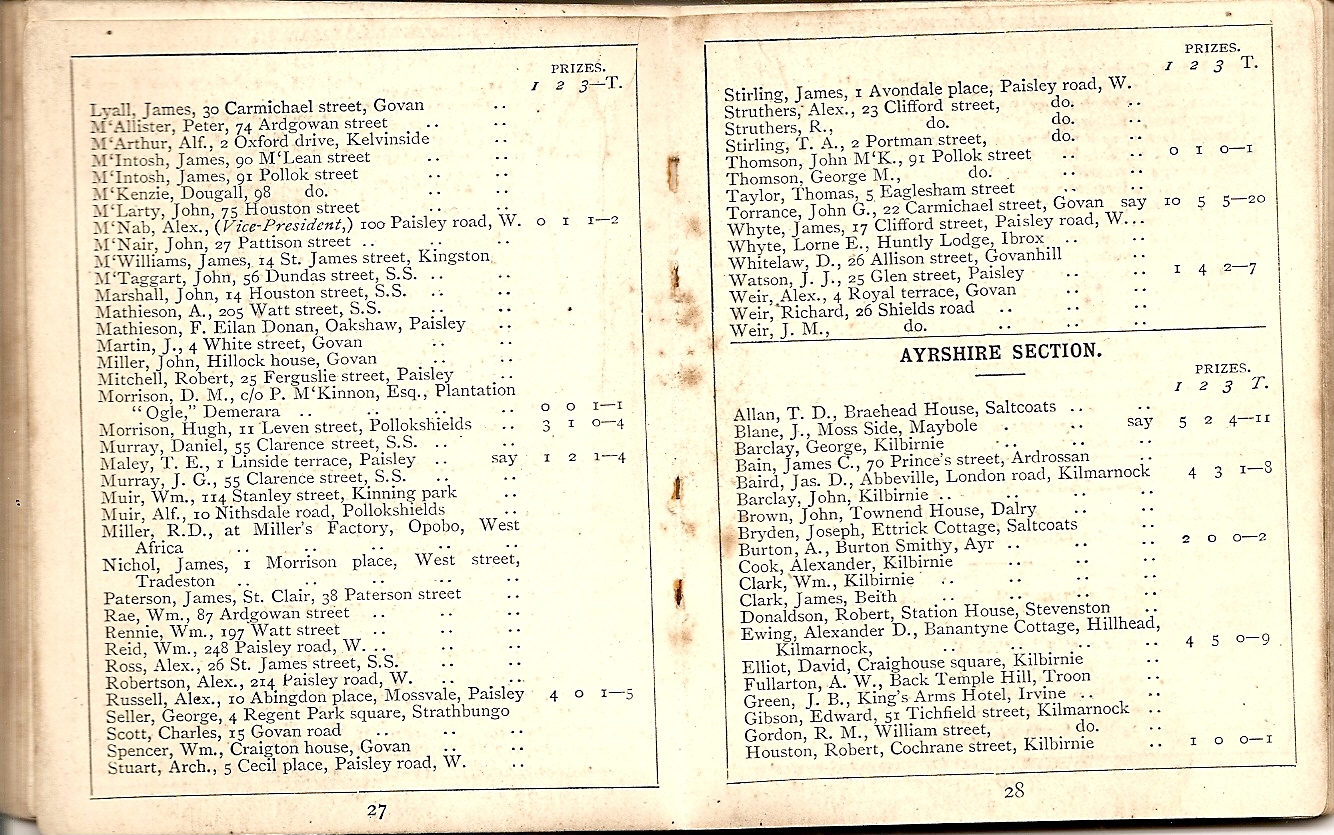 PRIZES.
1 2 3—T.
Lyall, James, 30 Carmichael street, Govan ..
M‘Allister, Peter, 74 Ardgowan street .. ..
M‘Arthur, Alf., 2 Oxford drive, Kelvinside ..
M‘Intosh, James, 90 M‘Lean street .. ..
M‘Intosh, James, 91 Pollok street .. ..
M‘Kenzie, Dougall, 98 do. .. ..
M‘Larty, John, 75 Houston street .. ..
M‘Nab, Alex., (Vice-President,) 100 Paisley road, W. 0 1 1—2
M‘Nair, John, 27 Pattison street .. .. ..
M‘Williams, James, 14 St. James street, Kingston
M‘Taggart, John, 56 Dundas street, S.S. .. ..
Marshall, John, 14 Houston street, S.S. .. ..
Mathieson, A., 205 Watt street, S.S. .. ..
Mathieson, F. Eilan Donan, Oakshaw, Paisley ..
Martin, J., 4 White street, Govan .. ..
Miller, John, Hillock house, Govan .. ..
Mitchell, Robert, 25 Ferguslie street, Paisley ..
Morrison, D. M., c/o P. M‘Kinnon, Esq., Plantation
“Ogle,” Demerara .. .. .. .. 0 0 1—1
Morrison, Hugh, 11 Leven street, Pollokshields .. 3 1 0—4
Murray, Daniel, 55 Clarence street, S.S. .. ..
Maley, T. E., 1 Linside terrace, Paisley .. say 1 2 1—4
Murray, J. G., 55 Clarence street, S.S. .. ..
Muir, Wm., 114 Stanley street, Kinning park ..
Muir, Alf., 10 Nithsdale road, Pollokshields ..
Miller, R.D., at Miller's Factory, Opobo, West
Africa .. .. .. .. ..
Nichol, James, 1 Morrison place, West street,
Tradeston .. .. .. .. ..
Paterson, James, St. Clair, 38 Paterson street ..
Rae, Wm., 87 Ardgowan street .. .. ..
Rennie, Wm., 197 Watt street .. .. ..
Reid, Wm., 248 Paisley road, W. .. .. ..
Ross, Alex., 26 St. James street, S.S. .. ..
Robertson, Alex., 214 Paisley road, W. .. ..
Russell, Alex., 10 Abingdon place, Mossvale, Paisley 4 0 1—5
Seller, George, 4 Regent Park square, Strathbungo
Scott, Charles, 15 Govan road .. .. ..
Spencer, Wm., Craigton house, Govan .. ..
Stuart, Arch., 5 Cecil place, Paisley road, W. ..
27
PRIZES.
1 2 3 T.
Stirling, James, 1 Avondale place, Paisley road, W.
Struthers, Alex., 23 Clifford street, do. ..
Struthers, R., do. do. ..
Stirling, T. A., 2 Portman street, do. ..
Thomson, John M‘K., 91 Pollok street .. .. 0 1 0—1
Thomson, George M., do. .. ..
Taylor, Thomas, 5 Eaglesham street .. ..
Torrance, John G., 22 Carmichael street, Govan say 10 5 5—20
Whyte, James, 17 Clifford street, Paisley road, W...
Whyte, Lorne E., Huntly Lodge, Ibrox .. ..
Whitelaw, D., 26 Allison street, Govanhill ..
Watson, J. J., 25 Glen street, Paisley .. .. 1 4 2—7
Weir, Alex., 4 Royal terrace, Govan .. ..
Weir, Richard, 26 Shields road .. .. ..
Weir, J. M., do. .. .. ..
AYRSHIRE SECTION.
PRIZES.
1 2 3 T.
Allan, T. D., Braehead House, Saltcoats .. ..
Blane, J., Moss Side, Maybole . .. say 5 2 4—11
Barclay, George, Kilbirnie .. .. ..
Bain, James C., 70 Prince's street, Ardrossan ..
Baird, Jas. D., Abbeville, London road, Kilmarnock 4 3 1—8
Barclay, John, Kilbirnie .. .. .. ..
Brown, John, Townend House, Dalry .. ..
Bryden, Joseph, Ettrick Cottage, Saltcoats ..
Burton, A., Burton Smithy, Ayr .. .. .. 2 0 0—2
Cook, Alexander, Kilbirnie .. .. ..
Clark, Wm., Kilbirnie .. .. .. ..
Clark, James, Beith .. .. .. ..
Donaldson, Robert, Station House, Stevenston ..
Ewing, Alexander D., Banantyne Cottage, Hillhead,
Kilmarnock, .. .. .. .. 4 5 0—9
Elliot, David, Craighouse square, Kilbirnie ..
Fullarton, A. W., Back Temple Hill, Troon ..
Green, J. B., King's Arms Hotel, Irvine .. ..
Gibson, Edward, 51 Tichfield street, Kilmarnock ..
Gordon, R. M., William street, do. ..
Houston, Robert, Cochrane street, Kilbirnie .. 1 0 0—1
28